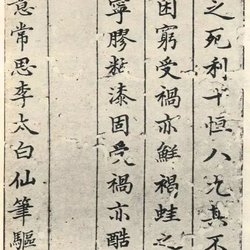 之死利十恒八九真不
困窮受禍亦鮮褐蛙之
寧膠粘漆固受禍亦酷
意常思李太白仙筆驅